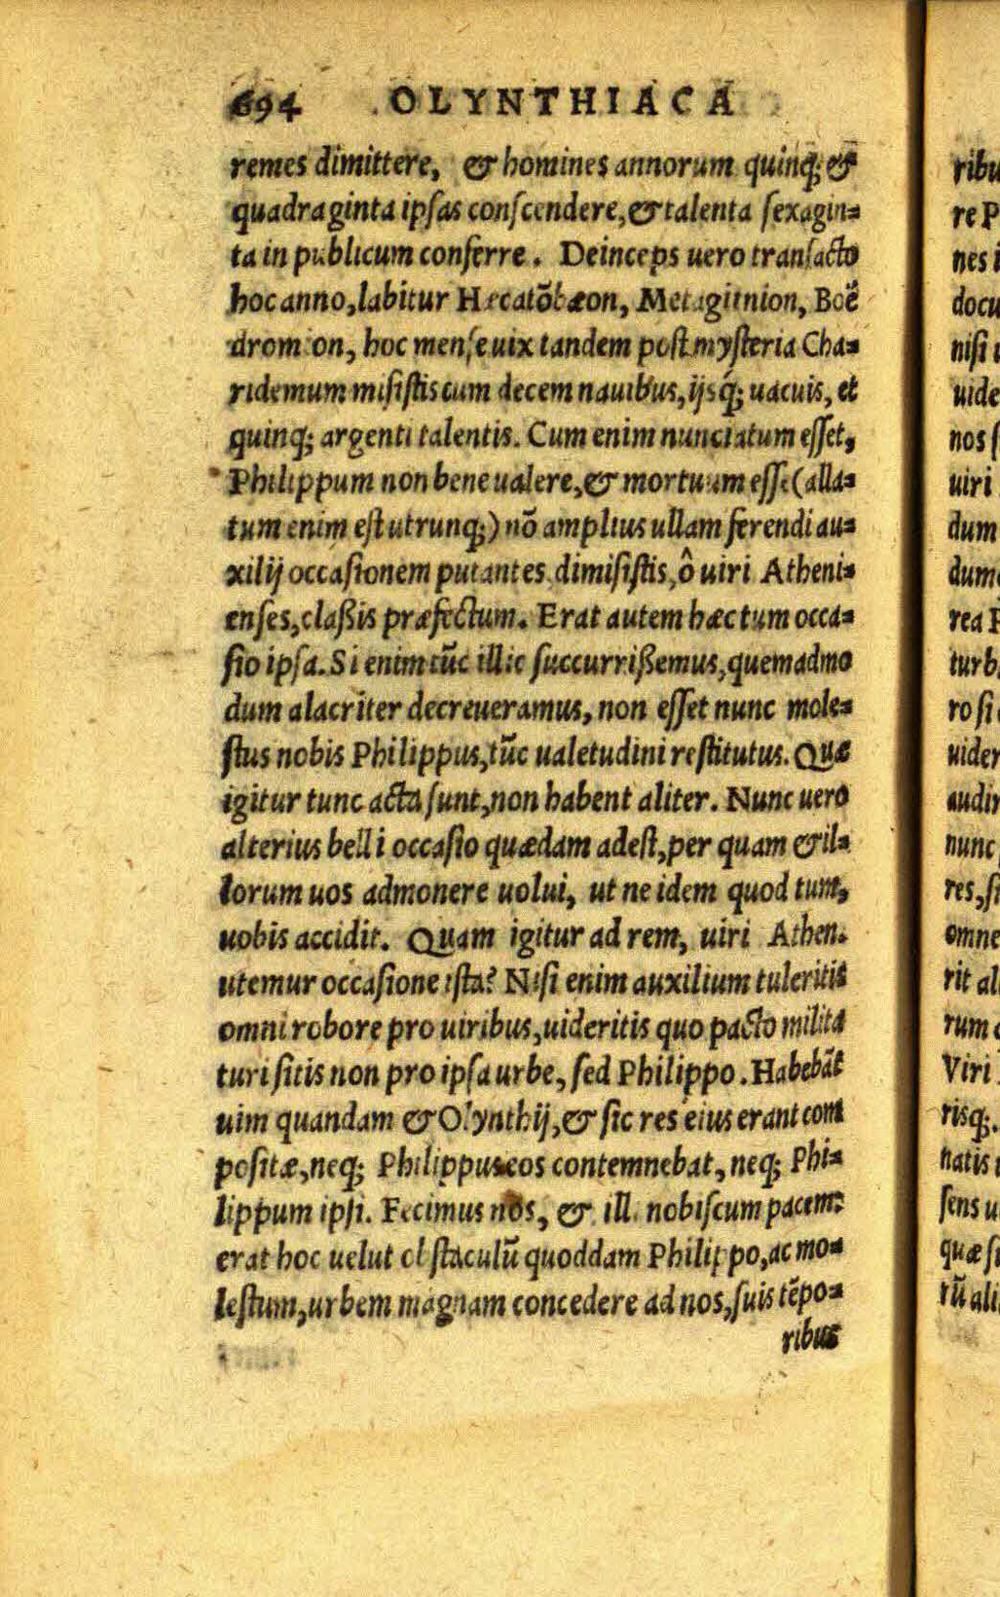 694 OLYNTHIACA
remes dimittere, & homines annorum quinq; &
quadraginta ipſas conſcendere, & talenta ſexagin=
ta in publicum conferre. Deinceps uero tranſacto
hoc anno, labitur Hecatõbæon, Metagitnion, Boë
dromion, hoc menſe uix tandem poſt myſteria Cha=
ridemum miſiſtis cum decem nauibus, ijsq́; uacuis, et
quinq; argenti talentis. Cum enim nunciatum eſſet,
Philippum non bene ualere, & mortuum eſſe (alla=
tum enim eſt utrunq;) nõ amplius ullam ferendi au=
xilij occaſionem putantes dimiſiſtis, ô uiri Atheni=
enſes, claßis præfectum. Erat autem hæc tum occa=
ſio ipſa. Si enim tũc illic ſuccurrißemus, quemadmo
dum alacriter decreueramus, non eſſet nunc mole=
ſtus nobis Philippus, tũc ualetudini reſtitutus. Quæ
igitur tunc acta ſunt, non habent aliter. Nunc uero
alterius belli occaſio quædam adeſt, per quam & il=
lorum uos admonere uolui, ut ne idem quod tum,
uobis accidit. Quam igitur ad rem, uiri Athen.
utemur occaſione iſta? Niſi enim auxilium tuleritis
omni robore pro uiribus, uideritis quo pacto milita
turi ſitis non pro ipſa urbe, ſed Philippo. Habebãt
uim quandam & Olynthij, & ſic res eius erant com
poſitæ, neq; Philippus eos contemnebat, neq; Phi=
lippum ipſi. Fecimus nos, & illi nobiſcum pacem:
erat hoc uelut obſtaculũ quoddam Philippo, ac mo=
leſtum, urbem magnam concedere ad nos, ſuis tẽpo=
ribus
ribu
re P
nes i
docu
niſi
uide
nos ſ
uiri
dum
dum
rea
turb
ro ſi
uider
audir
nunc
res, ſi
omne
rit al
rum
Viri
risq;.
natis
ſens u
quæ ſi
rũ ali